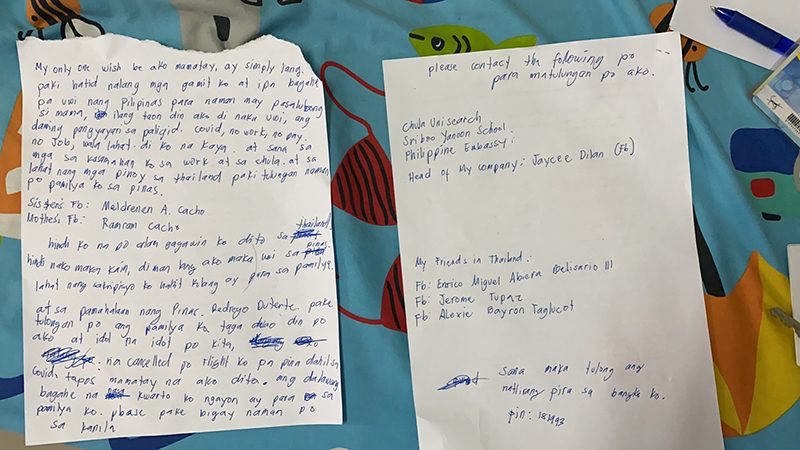 My only one wish be ako mamatay, ay simply lang.
paki hatid nalang mga gamit ko at ipa bagahe
pa uwi nang Pilipinas para naman may pasalubong
si mama, ilang taon din ako di naka uwi, ang
daming pangyayari sa paligid. covid, no work, no pay.
no Job, wala lahat. di ko na kaya. at sana sa
mga sa kasamahan ko sa work at sa chula. at sa
lahat nang mga pinoy sa thailand paki tulungan naman
po pamilya ko sa pinas.
Sister's Fb: Meldrenen A. Cacho
Mother's Fb: Ramram Cacho
hindi ko na po alam gagawin ko dito sa thailand
hindi nako makan kain, di man lang ako maka uwi sa pinas.
lahat nang ko kobang ay para sa pamilya.
at sa pamahalaan nang Pinas. Rodrego Duterte. pake
tulongan po ang pamilya ko. taga din po
ako at idol na idol po kita,
na cancelled po flight ko pa pina dahil sa
covid. tapos mamatay na ako dito. ang dalawang
bagahe na kwarto ko ngayon ay para sa
pamilya ko. please pake bigay naman po
sa kanila
please contact the following po
para matulungan po ako.
Chula Unisearch
Sriboo Yanoon School.
Philippine Embassy:
Head of My company: Jaycee Dilan (Fb)
My Friends in Thailand:
Fb: Enrico Miguel Abiera Belisario III
Fb: Jerome Tupaz
Fb: Alexie Bayron Taglucot
Sana maka tulong ang
natirang pira sa bangko ko.
pin: 181493